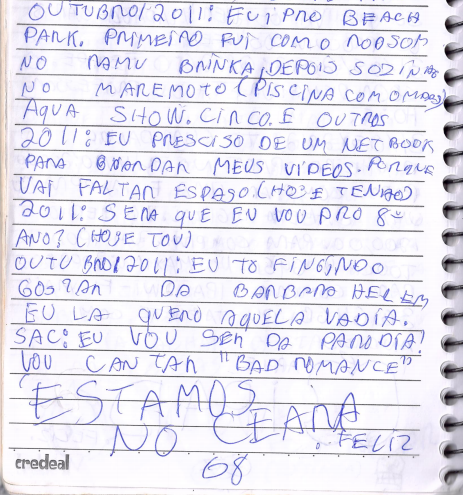 OUTUBRO/2011: EU FUI PRO BEACH
PARK. PRIMEIRO FUI COM O ROBSON
NO RAMU BRINKA, DEPOIS SOZINHO
NO MAREMOTO (PISCINA COM ONDAS)
AQUA SHOW. CIRCO. E OUTROS
2011: EU PRESCISO DE UM NETBOOK
PARA GUARDAR MEUS VÍDEOS. PORQUE
VAI FALTAR ESPAÇO. (HOJE TENHO)
2011: SERA QUE EU VOU PRO 8º
ANO? (HOJE TOU)
OUTUBRO/2011: EU TO FINGINDO
GOSTAR DA BARBARA HELEM
EU LA QUERO AQUELA VADIA.
SAC: EU VOU SER DA PARODIA!
VOU CANTAR "BAD ROMANCE"
ESTAMOS
NO CEARA
. FELIZ
credeal
68